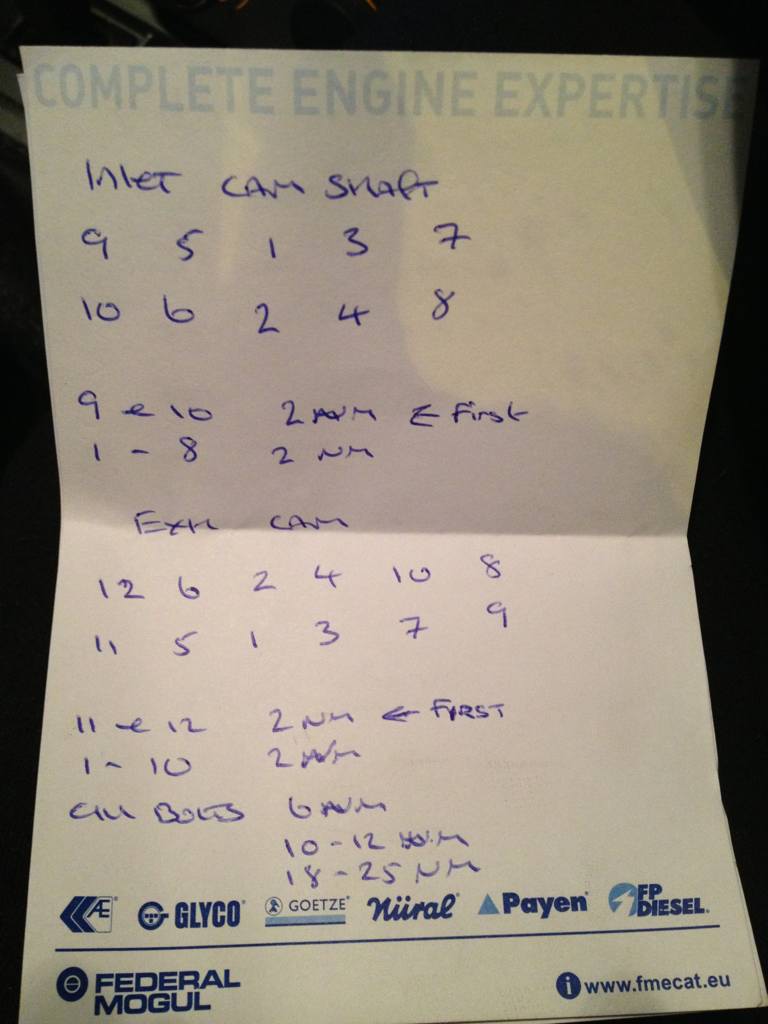 COMPLETE ENGINE EXPERTISE
Inlet CAM SHAft
9 5 1 3 7
10 6 2 4 8
9 e 10 2 NM ← First
1 - 8 2 NM
EXH CAM
12 6 2 4 10 8
11 5 1 3 7 9
11 e 12 2 NM ← FIRST
1 - 10 2 NM
All BOLTS 6 NM
10-12 NM
18-25 NM
AE GLYCO GOETZE Nüral Payen FP DIESEL
FEDERAL MOGUL
www.fmecat.eu